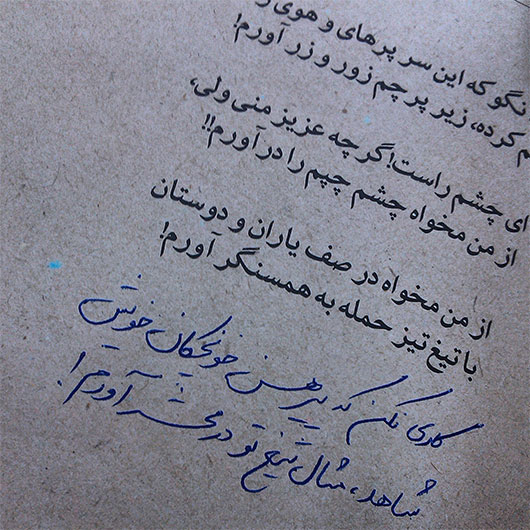 نگو که این سر پرهای و هوی ر
م کرده، زیر پرچم زور و زر آورم!
ای چشم راست! گرچه عزیز منی ولی،
از من مخواه چشم چپم را درآورم!!
از من مخواه در صف یاران و دوستان
با تیغ تیز حمله به همسنگر آورم!
کاری نکن که پیرهن خونچکان خویش
شاهد، مثال تیغ تو در محشر آورم!